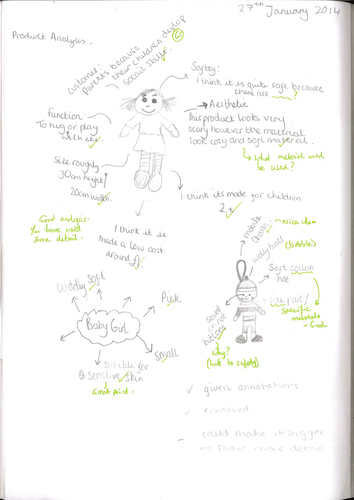 27th January 2014
Product Analysis.
customer:
parents because
their children develop
social skills.
Saftey:
I think it is quite safe because
there are ?
Aesthetic
This product looks very
scary however the material
look cosy and soft material.
what material could
be used?
Function
To hug or play
with etc.
Size roughly
30cm height/
20cm width.
I think its made for children
2+
Good analysis.
You have used
some detail.
I think it is
made a low cost
around
Cuddly
Soft
Pink
Baby Girl
Small
Suitable for
Sensitive Skin
Great point.
Nice idea
wolly ball
(bobble)
Soft cotton
hat
Specific
materials
- Good
buttons
Why?
(link to safety)
annotations
rendered
could make it bigger